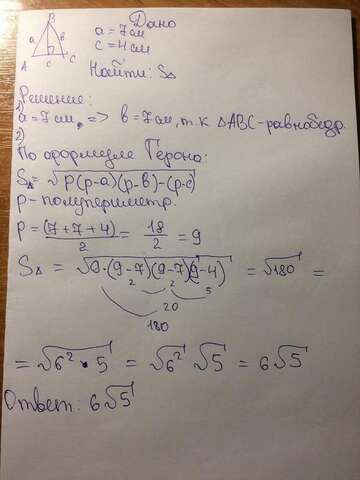 Дано
B
a = 7 см
a b
c = 4 см
A c C
Найти: S△
Решение:
1) a = 7 см, => b = 7 см, т.к △ABC - равнобедр.
2)
По формуле Герона:
S△ = √p(p-a)(p-b)-(p-c)
p - полупериметр.
p = (7+7+4)/2 = 18/2 = 9
S△ = √9·(9-7)(9-7)(9-4) = √180 =
2 2 5
20
180
= √6²·5 = √6² √5 = 6√5
Ответ: 6√5